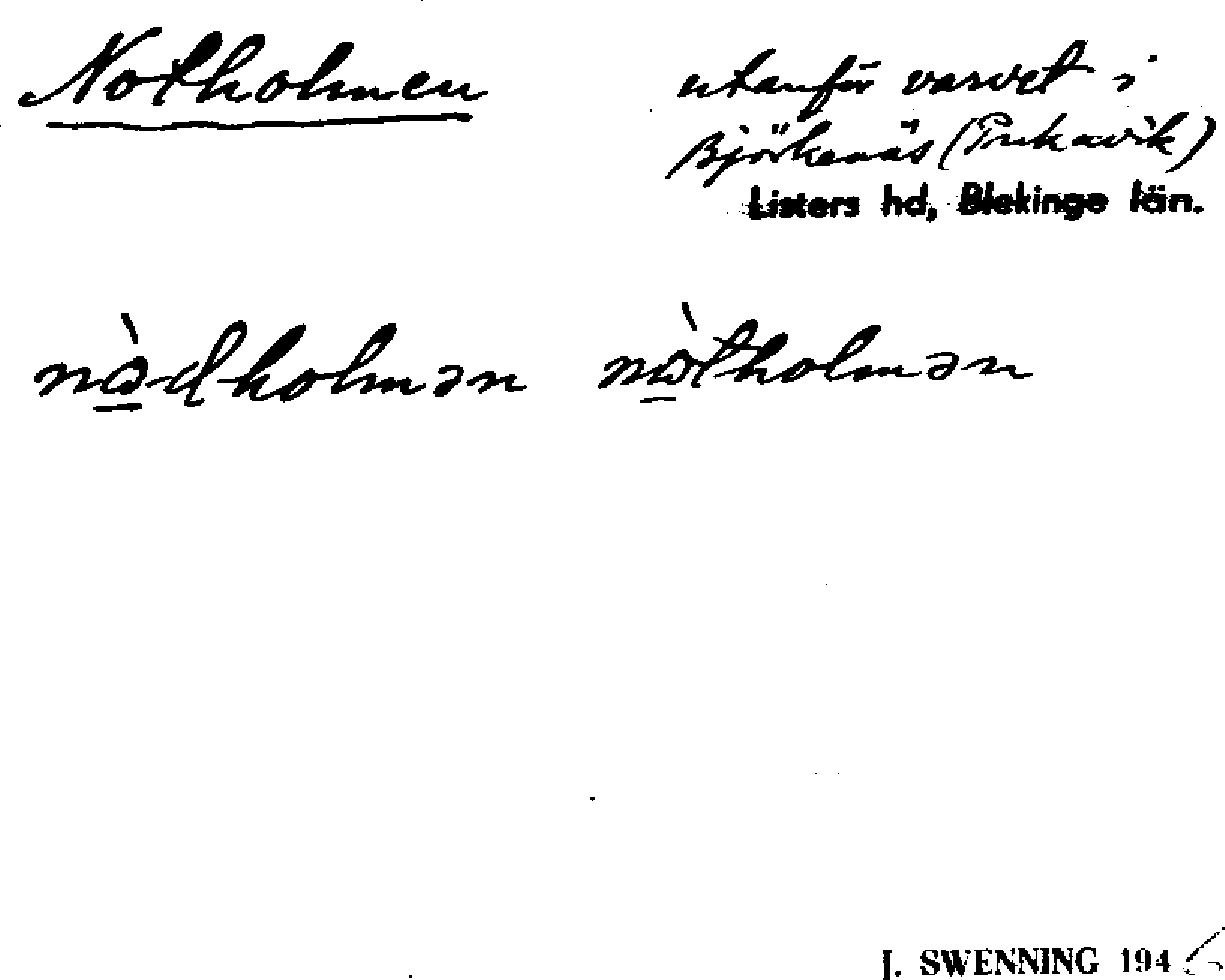 Notholmen
utanför varvet i
Björkenäs (Pukavik)
Listers hd, Blekinge län.
nòdholmən nòtholmən
J. SWENNING 1946